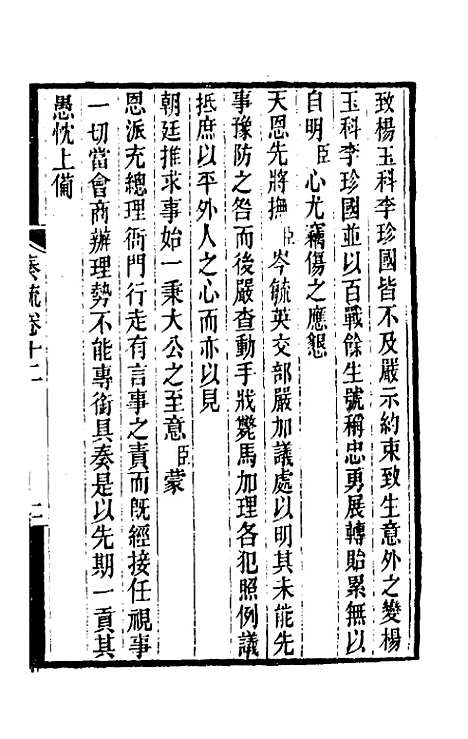 致楊玉科李珍國皆不及嚴示約束致生意外之變楊
玉科李珍國並以百戰餘生號稱忠勇展轉貽累無以
自明臣心尤竊傷之應懇
天恩先將撫臣岑毓英交部嚴加議處以明其未能先
事豫防之咎而後嚴查動手戕斃馬加理各犯照例議
抵庶以平外人之心而亦以見
朝廷推求事始一秉大公之至意臣蒙
恩派充總理衙門行走有言事之責而既經接任視事
一切當會商辦理勢不能專銜具奏是以先期一貢其
愚忱上備
奏疏卷十二
二